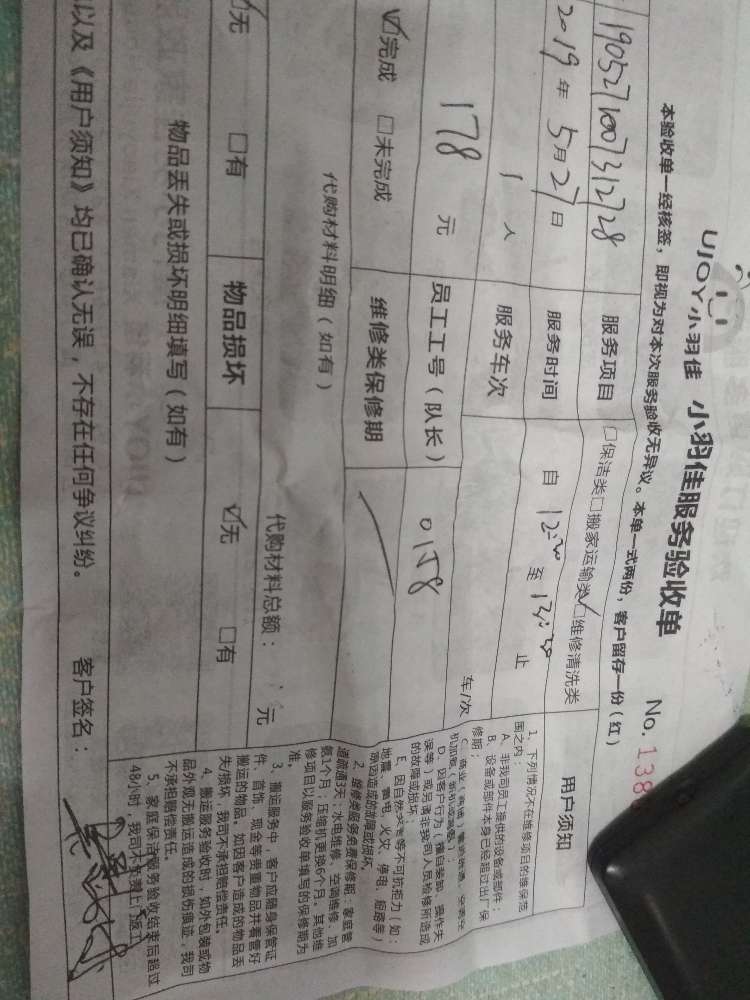 UJOY小羽佳 小羽佳服务验收单
No. 138
本验收单一经核签，即视为对本次服务验收无异议。本单一式两份，客户留存一份（红）
1905271007312728 服务项目 □保洁类□搬家运输类☑维修清洗类
2019年5月27日 服务时间 自12:20至13:20止
1人 服务车次 车/次
178元 员工工号（队长） 0158
☑完成 □未完成 维修类保修期
代购材料明细（如有） 代购材料总额： 元
☑无 □有 物品损坏 ☑无 □有
物品丢失或损坏明细填写（如有）
以及《用户须知》均已确认无误，不存在任何争议纠纷。 客户签名：
用户须知
1、下列情况不在维修项目的维保范
围之内：
A、非我司员工提供的设备或部件；
B、设备或部件本身已经超过出厂保
修期；
D、因客户行为（擅自装卸、操作失
误等）或另请非我司人员检修所造成
的故障或损坏；
E、因自然灾害等不可抗拒力（如：
地震、雷电、火灾、停电、短路等）
原因造成的故障或损坏。
2、维修类服务免费保修期：家庭管
道疏通3天；水电维修、空调维修、加
氨1个月，压缩机更换6个月。其他维
修项目以服务验收单填写的保修期为
准。
3、搬运服务中，客户应随身保管证
件、首饰、现金等贵重物品并看管好
搬运的物品。如因客户造成的物品丢
失/损坏，我司不承担赔偿责任。
4、搬运服务验收时，如外包装或物
品外观无搬运造成的损伤痕迹，我司
不承担赔偿责任。
5、家庭保洁服务验收结束后超过
48小时，我司不负责上门返工